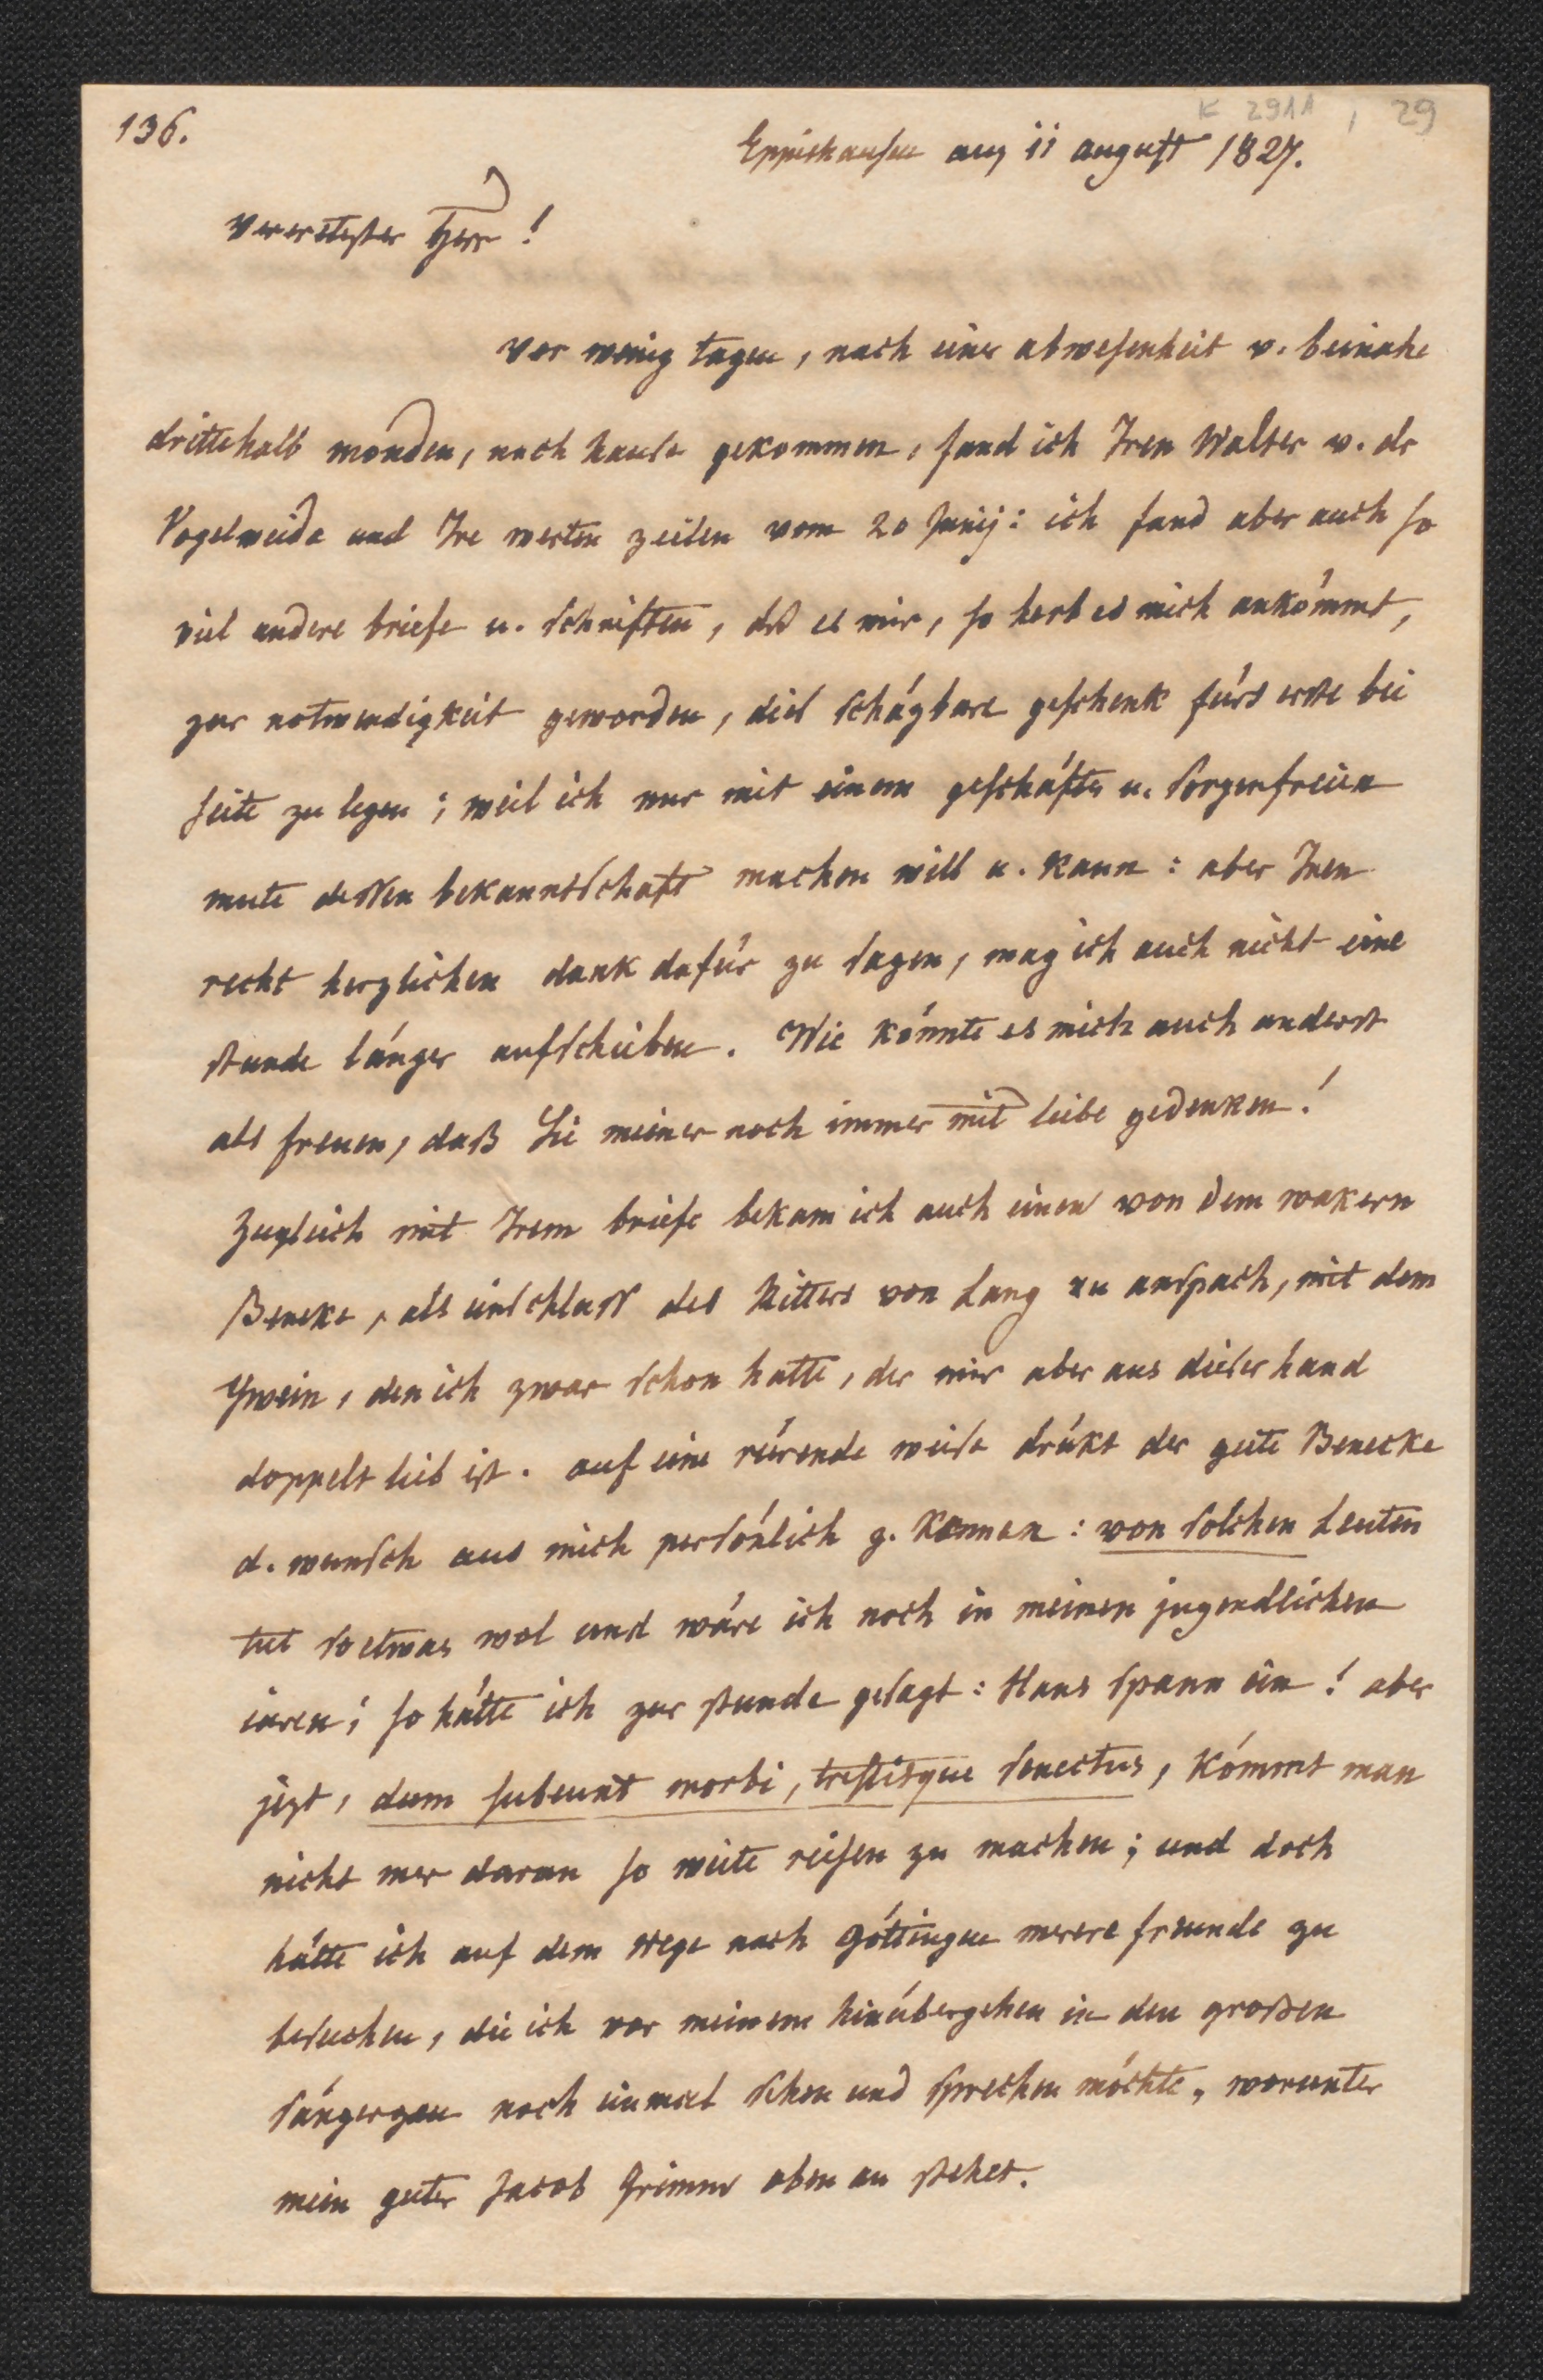 136.
K 2911, 29
Eppishausen aug 11 august 1827.
Vereretester Herr!
vor wenig tagen, nach einer abwesenheit v. beinahe
drittehalb monden, nach hause gekommen, fand ich Iren Walter v. dr
Vogelweide und Ire werten zeilen vom 20 Junij: ich fand aber auch so
viel andere briefe u. schriften, dß es mir, so herb es mich ankömmt,
zur notwendigkeit geworden, dies schäzbare geschenk fürs erste bei
seite zu legen; weil ich nur mit einem geschäfts u. sorgenfreien
mute dessen bekanntschaft machen will u. kann: aber Inen
recht herzlichen dank dafür zu sagen, mag ich auch nicht eine
stunde länger aufschieben. Wie könnte es mich auch anderst
als freuen, daß Sie meiner noch immer mit liebe gedenken!
Zugleich mit Irem briefe bekam ich auch einen von dem wakern
Beneke, als einschluss des Ritters von Lang zu anspach, mit dem
Ywein, den ich zwar schon hatte, der mir aber aus dieser hand
doppelt lieb ist. auf eine rürende weise drükt der gute Benecke
d. wunsch aus mich persönlich z. kennen: von solchen Leuten
tut so etwas wol und wäre ich noch in meinen jugendlichen
iaren; so hätte ich zur stunde gesagt: Hans spann ein! aber
jezt, dum subeunt morbi, tristisque senectus, kömmt man
nicht mer daran so weite reisen zu machen; und doch
hätte ich auf dem wege nach Göttingen merere freunde zu
besuchen, die ich vor meinem hinübergehen in den großen
sängergau noch einmal sehen und sprechen möchte, worunter
mein guter Jacob Grimm oben an stehet.